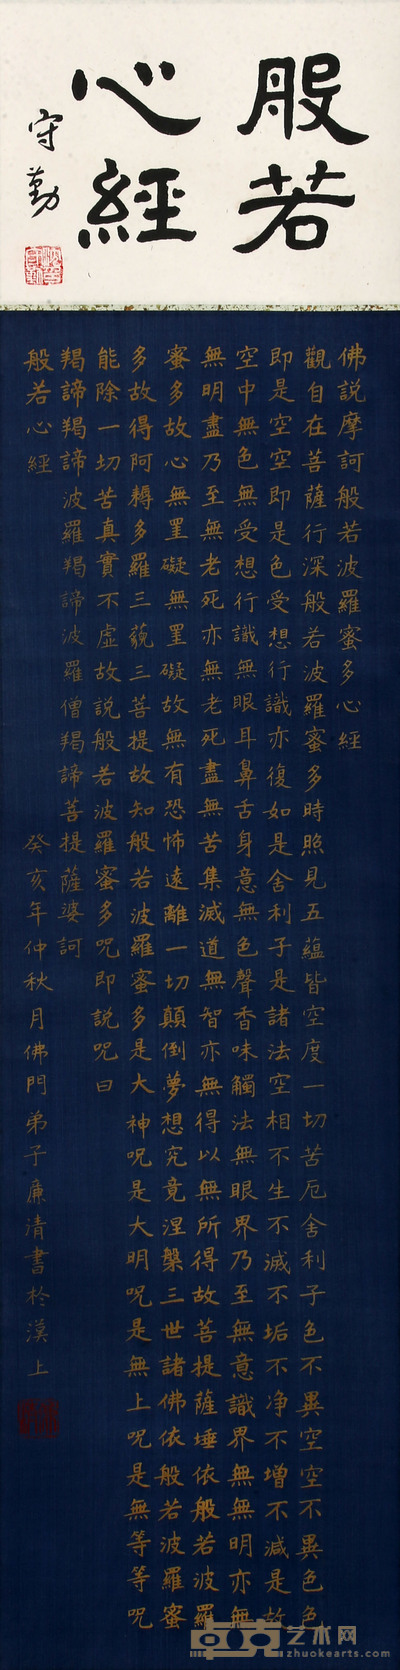 般若
心經
守勤
佛說摩訶般若波羅蜜多心經
觀自在菩薩行深般若波羅蜜多時照見五蘊皆空度一切苦厄舍利子色不異空空不異色色
即是空空即是色受想行識亦復如是舍利子是諸法空相不生不滅不垢不净不增不減是故
空中無色無受想行識無眼耳鼻舌身意無色聲香味觸法無眼界乃至無意識界無無明亦無
無明盡乃至無老死亦無老死盡無苦集滅道無智亦無得以無所得故菩提薩埵依般若波羅
蜜多故心無罣礙無罣礙故無有恐怖遠離一切顛倒夢想究竟涅槃三世諸佛依般若波羅蜜
多故得阿耨多羅三藐三菩提故知般若波羅蜜多是大神呪是大明呪是無上呪是無等等呪
能除一切苦真實不虛故説般若波羅蜜多呪即説呪曰
羯諦羯諦波羅羯諦波羅僧羯諦菩提薩婆訶
般若心經
癸亥年仲秋月佛門弟子廉清書於漢上
卓克艺术网
zhuokearts.com